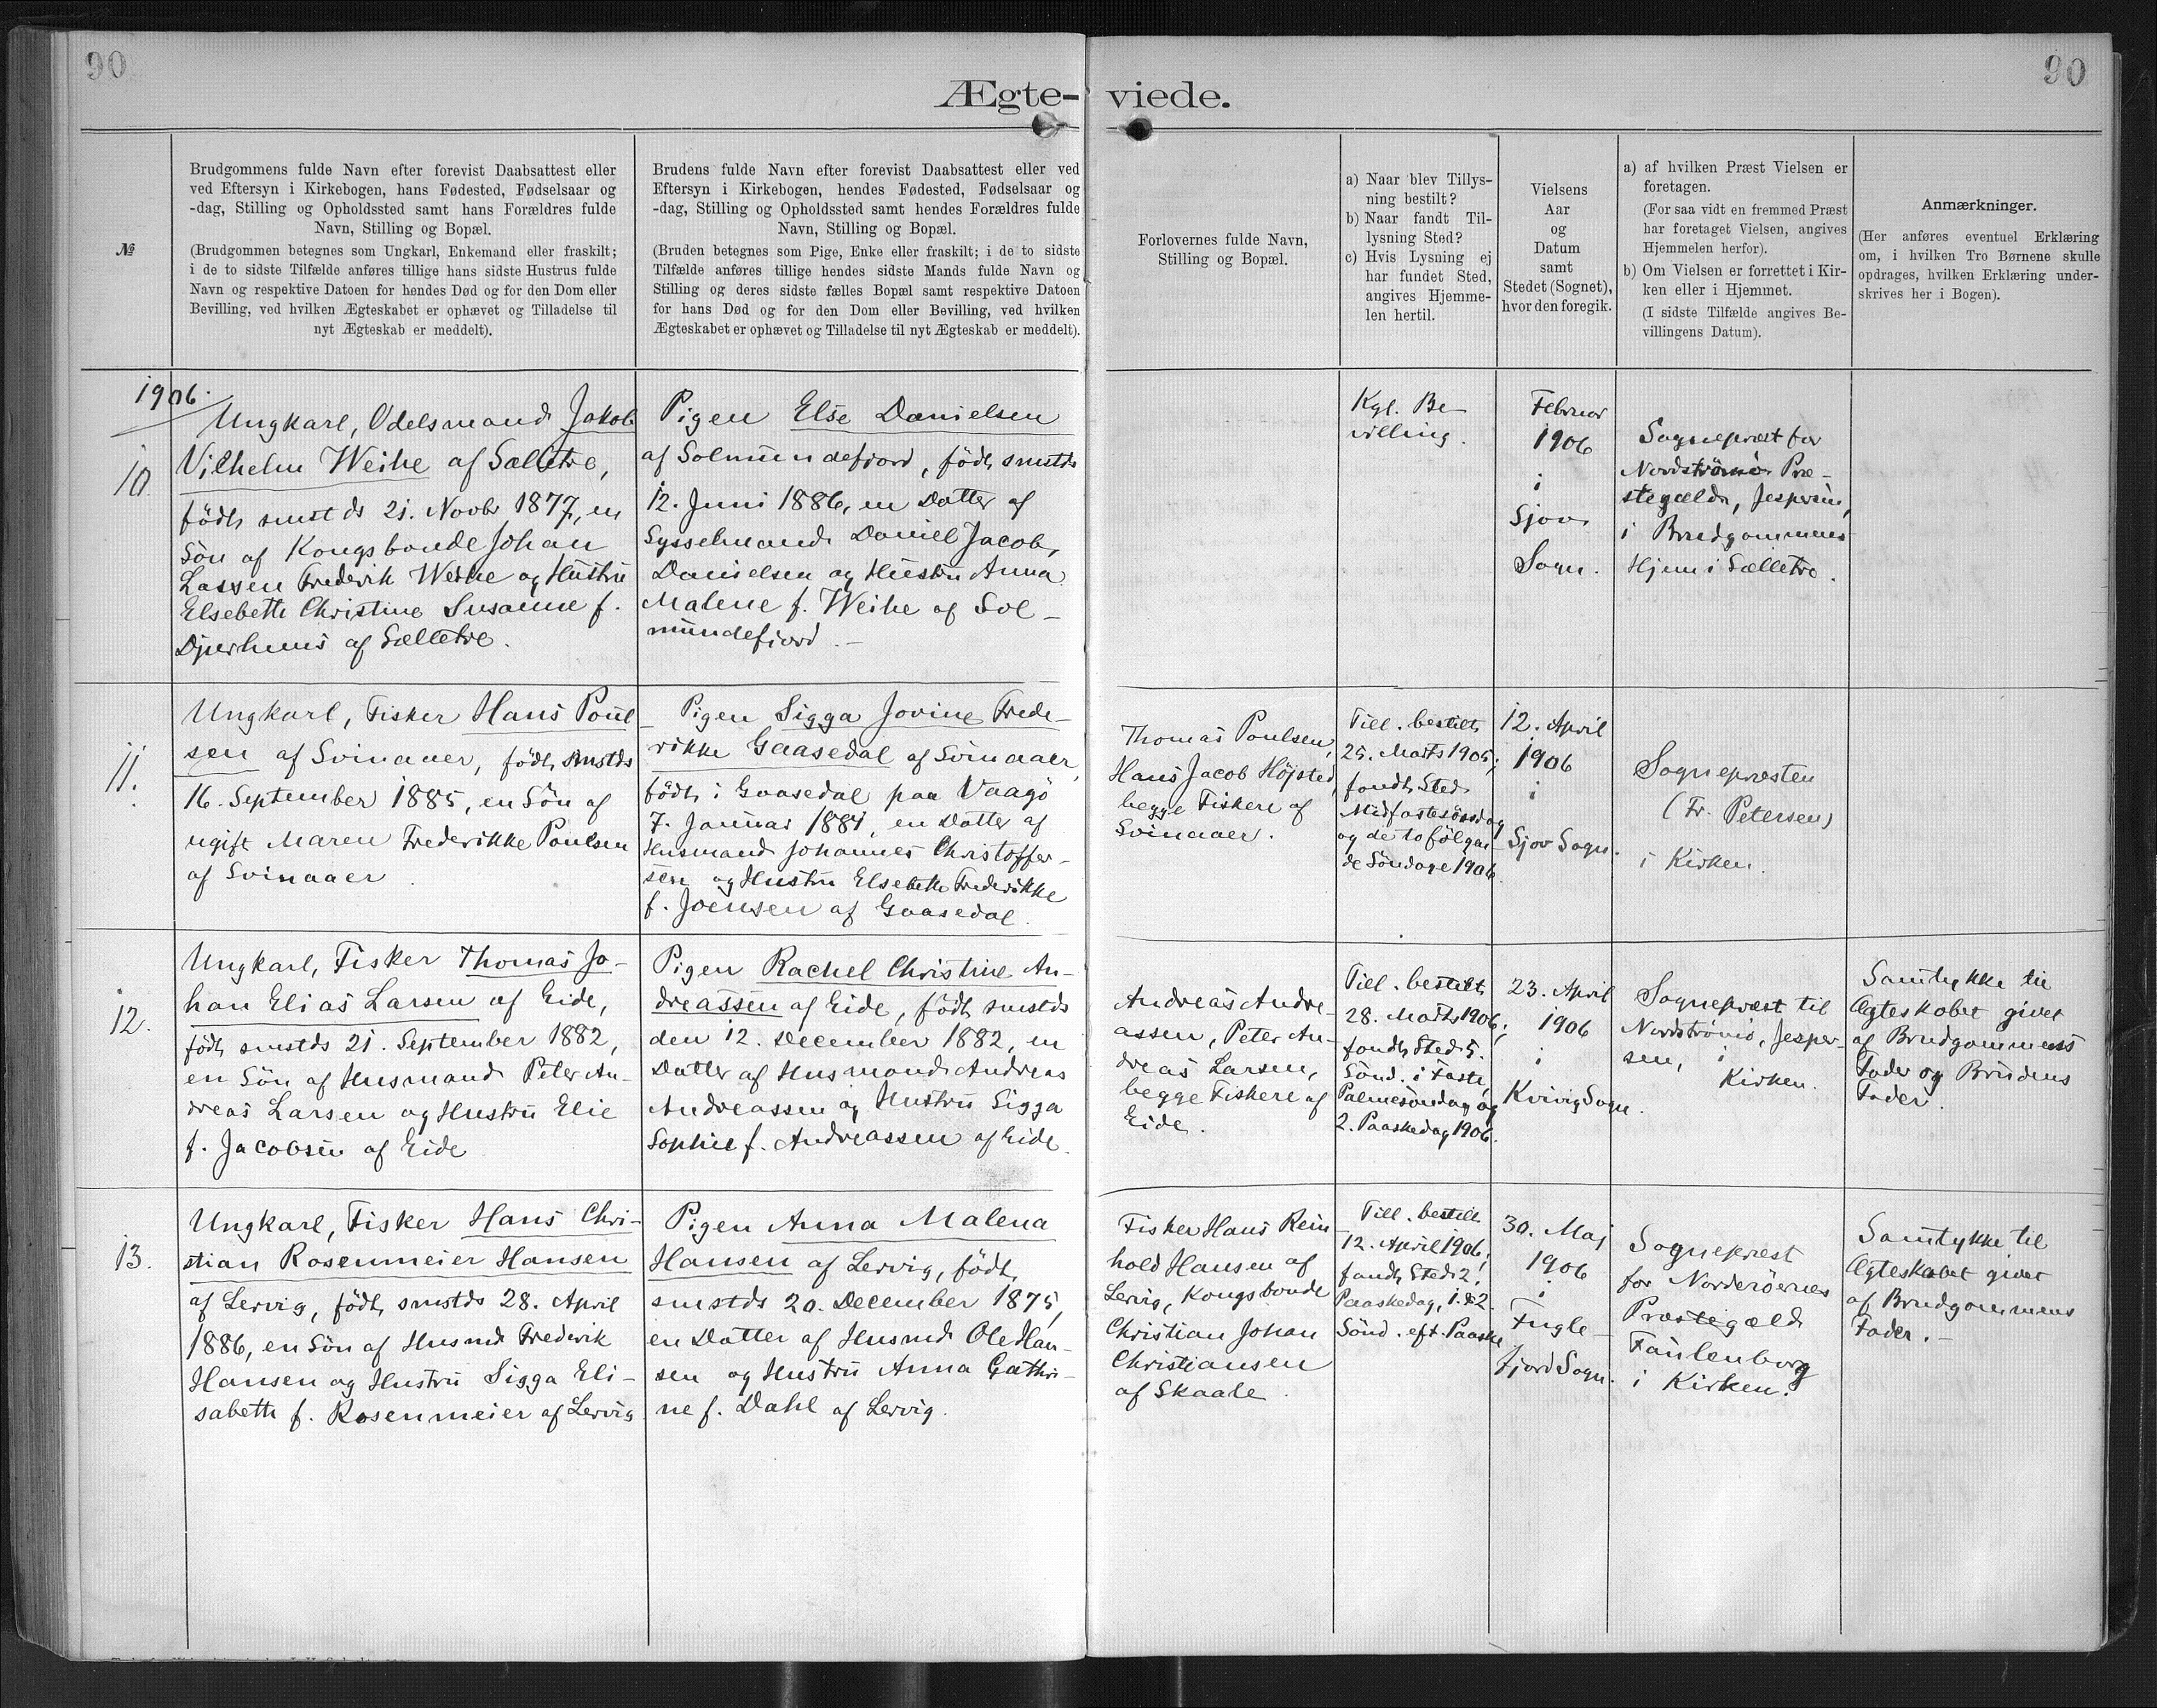 90
90
Ægte-
viede.
№
Brudgommens fulde Navn efter forevist Daabsattest eller
ved Eftersyn i Kirkebogen, hans Fødested, Fødselsaar og
-dag, Stilling og Opholdssted samt hans Forældres fulde
Navn, Stilling og Bopæl.
(Brudgommen betegnes som Ungkarl, Enkemand eller fraskilt;
i de to sidste Tilfælde anføres tillige hans sidste Hustrus fulde
Navn og respektive Datoen for hendes Død og for den Dom eller
Bevilling, ved hvilken Ægteskabet er ophævet og Tilladelse til
nyt Ægteskab er meddelt).
Brudens fulde Navn efter forevist Daabsattest eller ved
Eftersyn i Kirkebogen, hendes Fødested, Fødselsaar og
-dag, Stilling og Opholdssted samt hendes Forældres fulde
Navn, Stilling og Bopæl.
(Bruden betegnes som Pige, Enke eller fraskilt; i de to sidste
Tilfælde anføres tillige hendes sidste Mands fulde Navn og
Stilling og deres sidste fælles Bopæl samt respektive Datoen
for hans Død og for den Dom eller Bevilling, ved hvilken
Ægteskabet er ophævet og Tilladelse til nyt Ægteskab er meddelt).
Forlovernes fulde Navn,
Stilling og Bopæl.
a) Naar blev Tillys-
ning bestilt?
b) Naar fandt Til-
lysning Sted?
c) Hvis Lysning ej
har fundet Sted,
angives Hjemme-
len hertil.
Vielsens
Aar
og
Datum
samt
Stedet (Sognet),
hvor den foregik.
a) af hvilken Præst Vielsen er
foretagen.
(For saa vidt en fremmed Præst
har foretaget Vielsen, angives
Hjemmelen herfor).
b) Om Vielsen er forrettet i Kir-
ken eller i Hjemmet.
(I sidste Tilfælde angives Be-
villingens Datum).
Anmærkninger.
(Her anføres eventuel Erklæring
om, i hvilken Tro Børnene skulle
opdrages, hvilken Erklæring under-
skrives her i Bogen).
1906.
10.
Ungkarl, Odelsmand Jakob
Vilhelm Weihe af Sælletræ,
födt smstds 21. Novbr 1877, en
Sön af Kongsbonde Johan
Lassen Frederik Weihe og Hustru
Elsebeth Christine Susanne f.
Djurhuus af Sælletræ.
Pigen Else Danielsen
af Solmundefjord, födt smstds
12. Juni 1886, en Datter af
Sysselmand Daniel Jacob
Danielsen og Hustru Anna
Malene f. Weihe af Sol-
mundefjord.-
Kgl. Be-
villing.
Februar
1906
i
Sjov
Sogn.
Sognepræst for
Nordströmö Præ-
stegæld, Jespersen,
i Brudgommens
Hjem i Sælletræ.
11.
Ungkarl, Fisker Hans Poul-
sen af Svinaaer, födt smstds
16. September 1885, en Sön af
ugift Maren Frederikke Poulsen
af Svinaaer.
Pigen Sigga Jovine Frede-
rikke Gaasedal af Svinaaer,
födt i Gaasedal paa Vaagö
7. Januar 1881, en Datter af
Husmand Johannes Christoffer-
sen og Hustru Elsebeth Frederikke
f. Joensen af Gaasedal.
Thomas Poulsen,
Hans Jacob Höjsted,
begge Fiskere af
Svinaaer.
Till. bestilt
25. Marts 1906;
fandt Sted
Midfastesöndag
og de to fölgen-
de Söndage 1906.
12. April
1906
i
Sjov Sogn.
Sognepræsten
(Fr. Petersen)
i Kirken.
12.
Ungkarl, Fisker Thomas Jo-
han Elias Larsen af Eide,
födt smstds 21. September 1882,
en Sön af Husmand Peter An-
dreas Larsen og Hustru Elie
f. Jacobsen af Eide
Pigen Rachel Christine An-
dreassen af Eide, födt smstds
den 12. December 1882, en
Datter af Husmand Andreas
Andreassen og Hustru Sigga
Sophie f. Andreassen af Eide.
Andreas Andre-
assen, Peter An-
dreas Larsen,
begge Fiskere af
Eide.
Till. bestilt
28. Marts 1906;
fandt Sted 5.
Sönd. i Faste,
Palmesöndag og
2. Paaskedag 1906.
23. April
1906
i
Kvivig Sogn.
Sognepræst til
Nordströmö, Jesper-
sen, i
Kirken.
Samtykke til
Ægteskabet givet
af Brudgommens
Fader og Brudens
Fader.
13.
Ungkarl, Fisker Hans Chri-
stian Rosenmeier Hansen
af Lervig, födt smstds 28. April
1886, en Sön af Husmd Frederik
Hansen og Hustru Sigga Eli-
sabeth f. Rosenmeier af Lervig
Pigen Anna Malena
Hansen af Lervig, födt
smstds 20. December 1875,
en Datter af Husmd Ole Han-
sen og Hustru Anna Cathri-
ne f. Dahl af Lervig.
Fisker Hans Rein
hold Hansen af
Lervig, Kongsbonde
Christian Johan
Christiansen
af Skaale.
Till. bestilt
12. April 1906;
fandt Sted 2.
Paaskedag, 1. & 2.
Sönd. eft. Paaske
30. Maj
1906
i
Fugle-
fjord Sogn.
Sognepræst
for Norderöernes
Præstegæld
Faulenborg
i Kirken.
Samtykke til
Ægteskabet givet
af Brudgommens
Fader.-